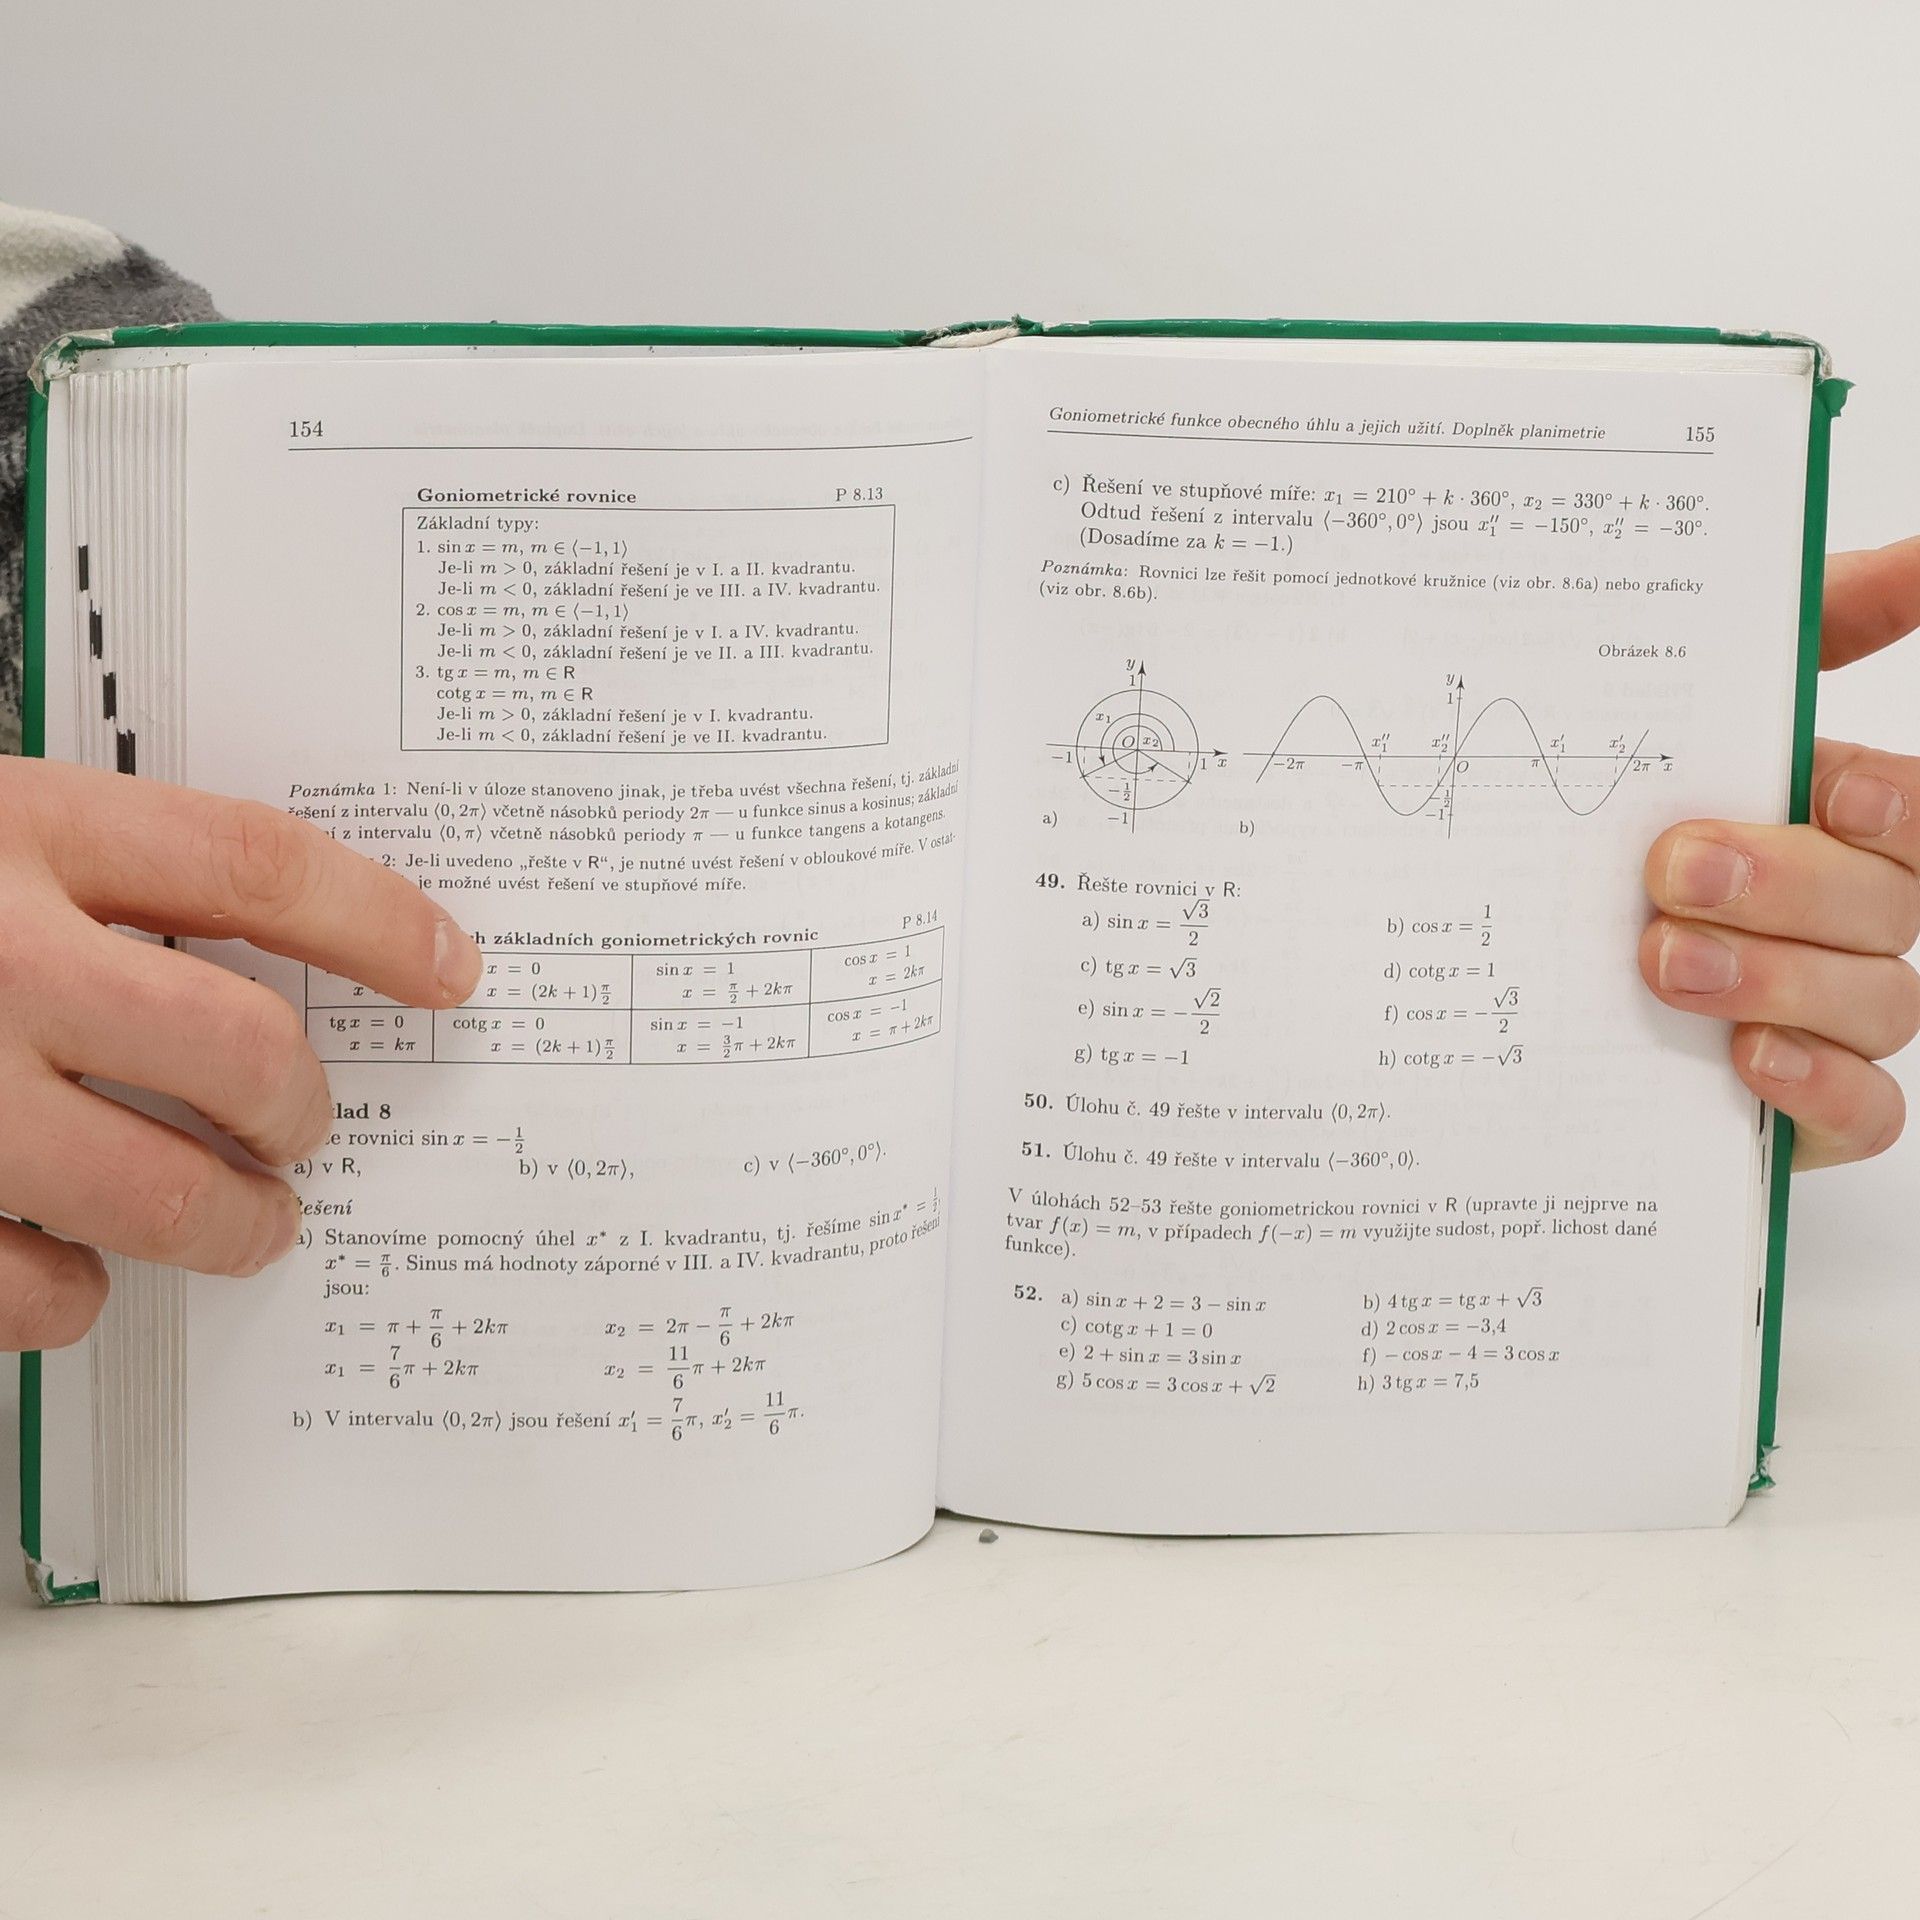 154
Goniometrické rovnice P 8.13
Základní typy:
1. sin x = m, m ∈ ⟨−1, 1⟩
Je-li m > 0, základní řešení je v I. a II. kvadrantu.
Je-li m < 0, základní řešení je ve III. a IV. kvadrantu.
2. cos x = m, m ∈ ⟨−1, 1⟩
Je-li m > 0, základní řešení je v I. a IV. kvadrantu.
Je-li m < 0, základní řešení je ve II. a III. kvadrantu.
3. tg x = m, m ∈ R
cotg x = m, m ∈ R
Je-li m > 0, základní řešení je v I. kvadrantu.
Je-li m < 0, základní řešení je ve II. kvadrantu.
Poznámka 1: Není-li v úloze stanoveno jinak, je třeba uvést všechna řešení, tj. základní
řešení z intervalu ⟨0, 2π) včetně násobků periody 2π — u funkce sinus a kosinus; základní
z intervalu ⟨0, π) včetně násobků periody π — u funkce tangens a kotangens.
2: Je-li uvedeno „řešte v R“, je nutné uvést řešení v obloukové míře. V ostat-
je možné uvést řešení ve stupňové míře.
P 8.14
základních goniometrických rovnic
x = 0 sin x = 1 cos x = 1
x x = (2k + 1)π/2 x = π/2 + 2kπ x = 2kπ
tg x = 0 cotg x = 0 sin x = −1 cos x = −1
x = kπ x = (2k + 1)π/2 x = 3/2π + 2kπ x = π + 2kπ
lad 8
rovnici sin x = −1/2
a) v R, b) v ⟨0, 2π), c) v ⟨−360°, 0°).
Řešení
a) Stanovíme pomocný úhel x* z I. kvadrantu, tj. řešíme sin x* = 1/2,
x* = π/6. Sinus má hodnoty záporné v III. a IV. kvadrantu, proto řešení
jsou:
x₁ = π + π/6 + 2kπ x₂ = 2π − π/6 + 2kπ
x₁ = 7/6π + 2kπ x₂ = 11/6π + 2kπ
b) V intervalu ⟨0, 2π) jsou řešení x₁′ = 7/6π, x₂′ = 11/6π.
Goniometrické funkce obecného úhlu a jejich užití. Doplněk planimetrie 155
c) Řešení ve stupňové míře: x₁ = 210° + k · 360°, x₂ = 330° + k · 360°.
Odtud řešení z intervalu ⟨−360°, 0°) jsou x₁″ = −150°, x₂″ = −30°.
(Dosadíme za k = −1.)
Poznámka: Rovnici lze řešit pomocí jednotkové kružnice (viz obr. 8.6a) nebo graficky
(viz obr. 8.6b).
Obrázek 8.6
y
1
x₁
O x₂
−1 1 x
−1/2
−1
a)
y
1
x₁″ x₂″ x₁′ x₂′
−2π −π O π 2π x
−1/2
−1
b)
49. Řešte rovnici v R:
a) sin x = √3/2 b) cos x = 1/2
c) tg x = √3 d) cotg x = 1
e) sin x = −√2/2 f) cos x = −√3/2
g) tg x = −1 h) cotg x = −√3
50. Úlohu č. 49 řešte v intervalu ⟨0, 2π).
51. Úlohu č. 49 řešte v intervalu ⟨−360°, 0).
V úlohách 52–53 řešte goniometrickou rovnici v R (upravte ji nejprve na
tvar f(x) = m, v případech f(−x) = m využijte sudost, popř. lichost dané
funkce).
52. a) sin x + 2 = 3 − sin x b) 4 tg x = tg x + √3
c) cotg x + 1 = 0 d) 2 cos x = −3,4
e) 2 + sin x = 3 sin x f) − cos x − 4 = 3 cos x
g) 5 cos x = 3 cos x + √2 h) 3 tg x = 7,5